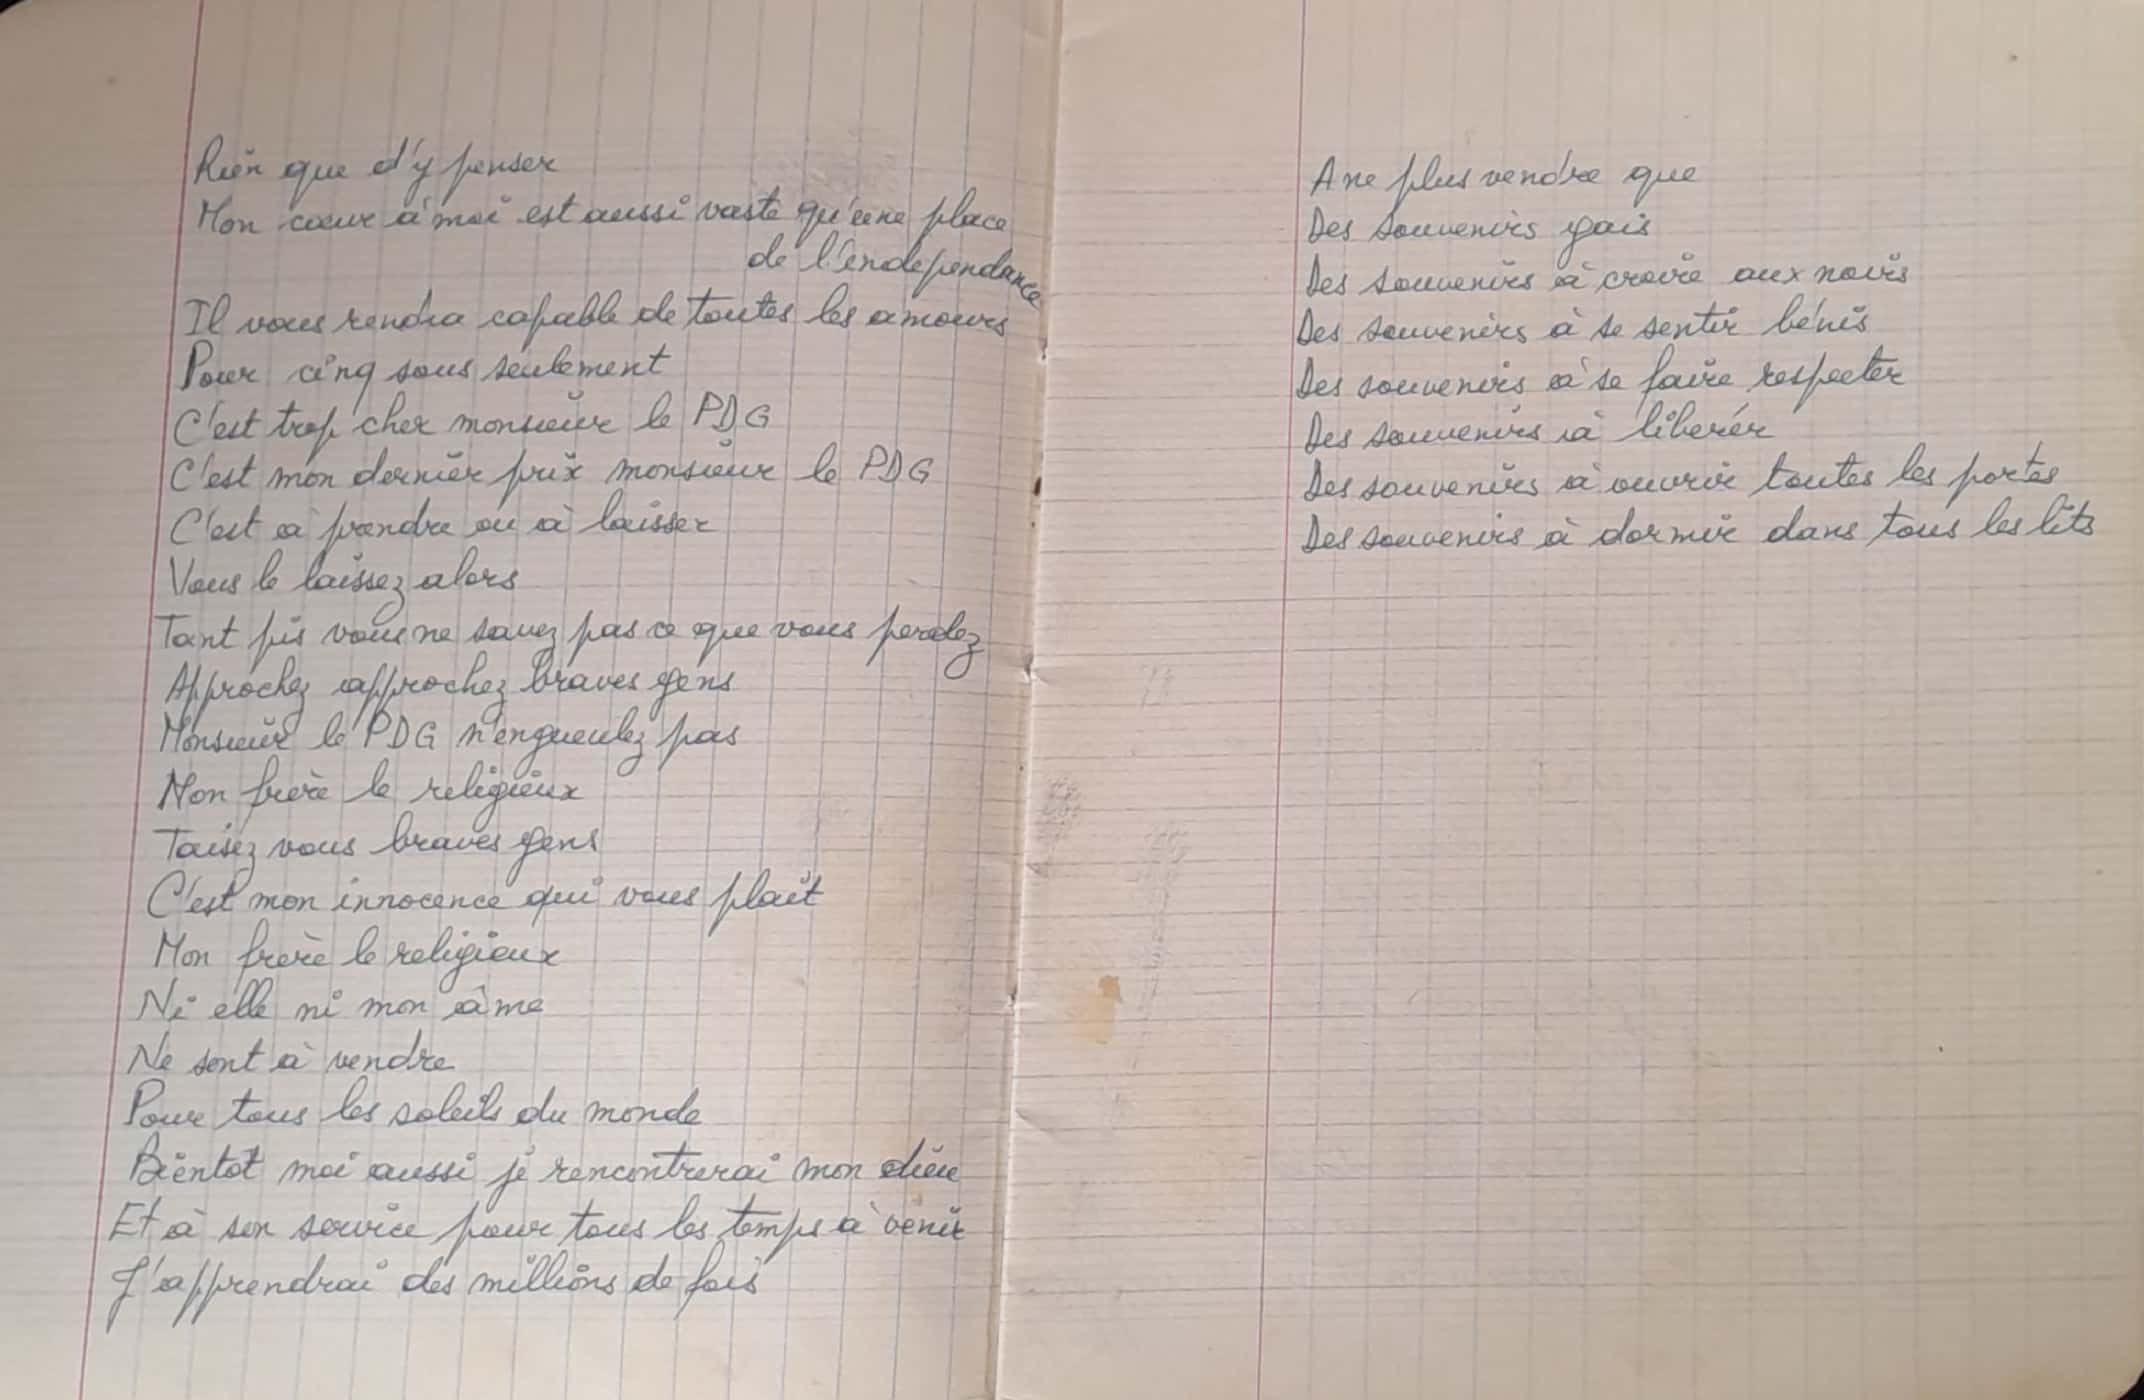 Rien que d'y penser
Mon cœur à moi est aussi vaste qu'une place
de l'indépendance
Il vous rendra capable de toutes les amours
Pour cinq sous seulement
C'est trop cher monsieur le PDG
C'est mon dernier prix monsieur le PDG
C'est à prendre ou à laisser
Vous le laissez alors
Tant pis vous ne savez pas ce que vous perdez
Approchez approchez braves gens
Monsieur le PDG n'engueulez pas
Mon frère le religieux
Taisez vous braves gens
C'est mon innocence qui vous plaît
Mon frère le religieux
Ni elle ni mon âme
Ne sont à vendre
Pour tous les soleils du monde
Bientôt moi aussi je rencontrerai mon dieu
Et à son service pour tous les temps à venir
J'apprendrai des millions de fois
A ne plus vendre que
Des souvenirs gais
Des souvenirs à croire aux noirs
Des souvenirs à se sentir bénis
Des souvenirs à se faire respecter
Des souvenirs à libérer
Des souvenirs à ouvrir toutes les portes
Des souvenirs à dormir dans tous les lits